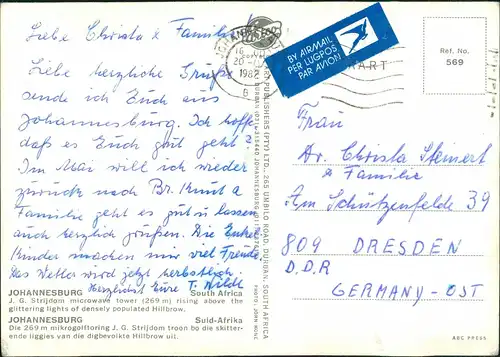 Liebe Christa & Familie!
Liebe herzliche Grüße
sende ich Euch aus
Johannesburg. Ich hoffe
daß es Euch gut geht?
Im Mai will ich wieder
zurück nach
Familie geht es gut u lassen
auch herzlich grüßen. Die Enkel
Kinder machen mir viel Freude.
Das Wetter wird jetzt herbstlich.
Herzlichst Eure T. Hilde
JOHANNESBURG South Africa
J. G. Strijdom microwave tower (269 m) rising above the
glittering lights of densely populated Hillbrow.
JOHANNESBURG Suid-Afrika
Die 269 m mikrogolftoring J. G. Strijdom troon bo die skitter-
ende liggies van die digbevolkte Hillbrow uit.
1982
B
BY AIRMAIL
PER LUGPOS
PAR AVION
Ref. No.
569
Frau
Dr. Christa Steinert
& Familie
Am Schützenfelde 39
809 DRESDEN
D.D.R
GERMANY-OST
ABC PRESS